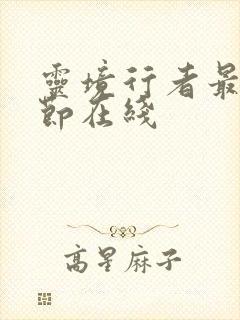 靈境行者最
節在綫
高星麻子